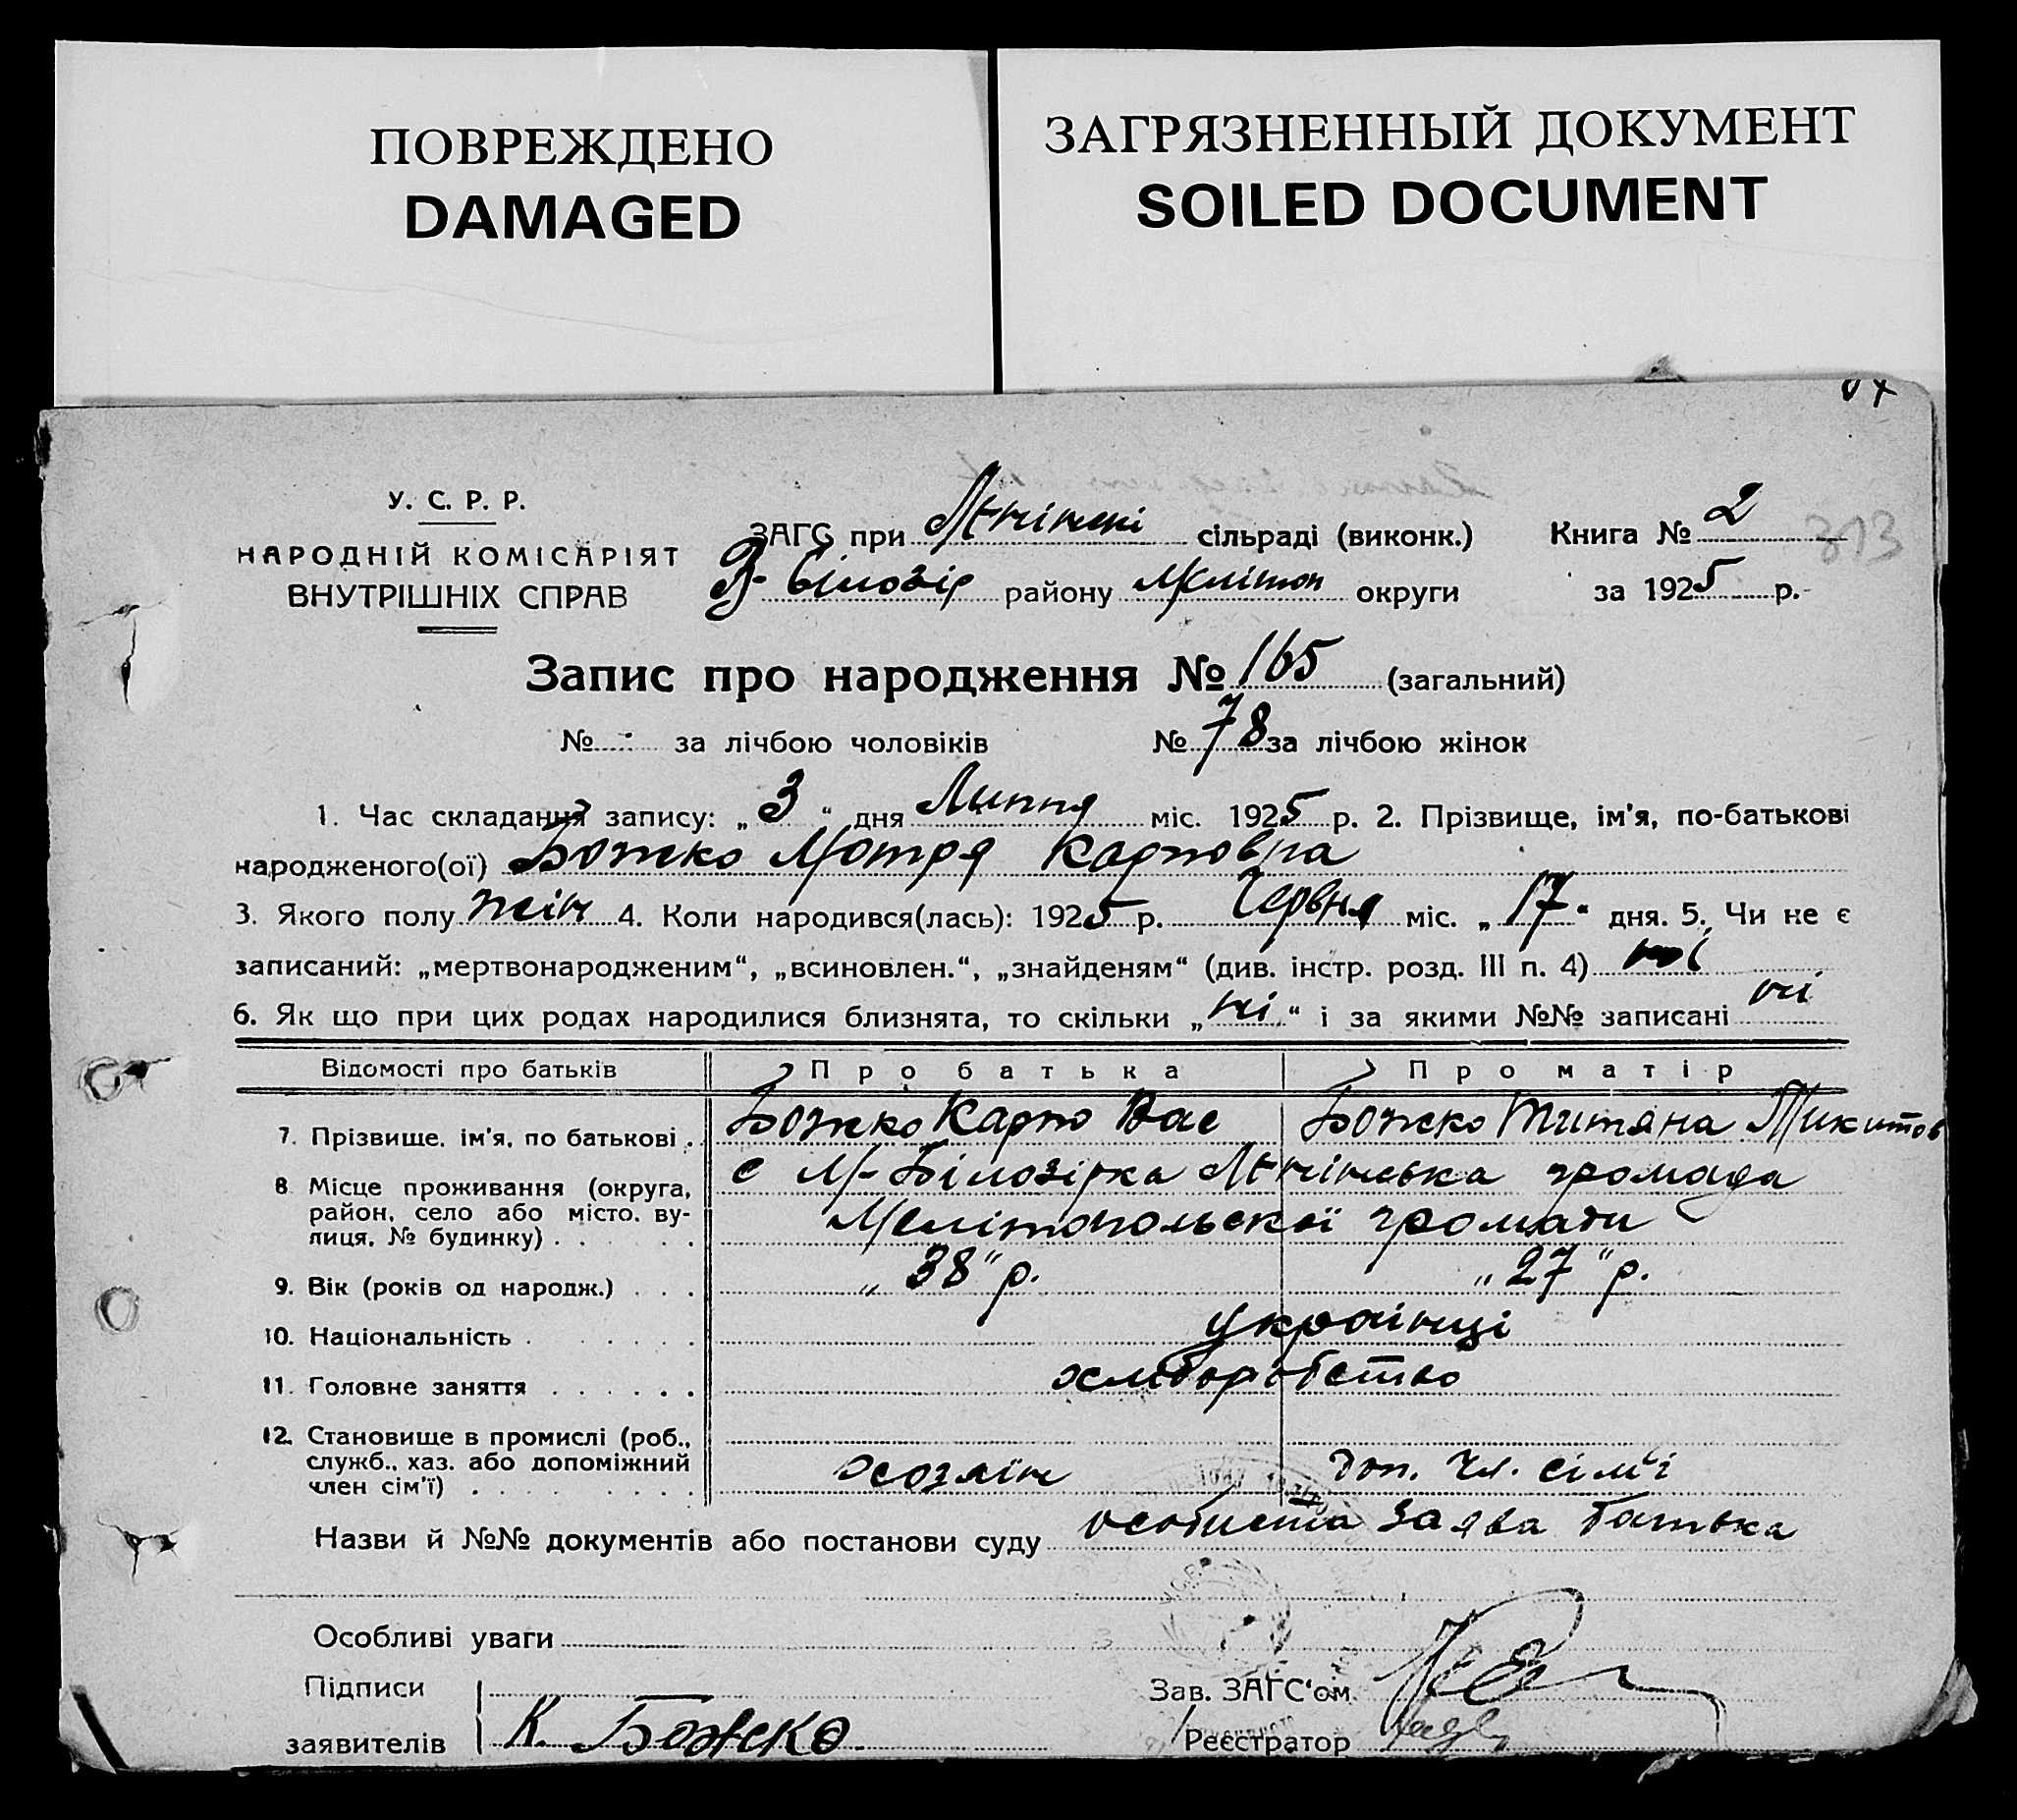 ПОВРЕЖДЕНО
DAMAGED
ЗАГРЯЗНЕННЫЙ ДОКУМЕНТ
SOILED DOCUMENT
У. С. Р. Р.
НАРОДНІЙ КОМІСАРІЯТ
ВНУТРІШНІХ СПРАВ
ЗАГС при сільраді (виконк.)
В-Білозір району Мелітоп округи
Книга № 2
313
за 1925 р.
Запис про народження № 165 (загальний)
№ за лічбою чоловіків № 78 за лічбою жінок
1. Час складання запису: „3“ дня Липня міс. 1925 р. 2. Прізвище, ім'я, по-батькові
народженого(ої) Божко Мотря Карповна
3. Якого полу жін 4. Коли народився(лась): 1925 р. Червня міс. „17“ дня. 5. Чи не є
записаний: „мертвонародженим“, „всиновлен.“, „знайденям“ (див. інстр. розд. III п. 4) ні
6. Як що при цих родах народилися близнята, то скільки „ні“ і за якими №№ записані ні
Відомості про батьків Про батька Про матір
7. Прізвище, ім'я, по батькові Божко Карпо Вас Божко Титяна Микитов
8 Місце проживання (округа, район, село або місто, вулиця, № будинку) с М-Білозірка громада
Мелітопольскої громади
9. Вік (років од народж.) „38“ р. „27“ р.
10. Національність українці
11. Головне заняття хліборобство
12. Становище в промислі (роб., служб., хаз. або допоміжний член сім'ї) хозяїн доп. чл. сім'ї
Назви й №№ документів або постанови суду особиста заява батька
Особливі уваги
Підписи
заявителів К. Божко
Зав. ЗАГС'ом
Реєстратор